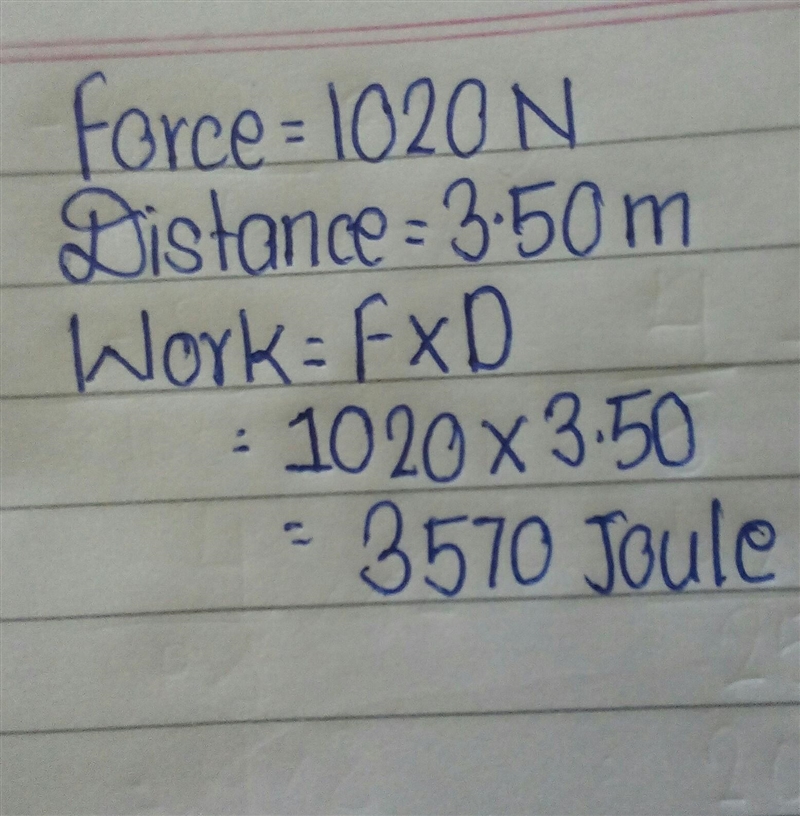 Force = 1020 N
Distance = 3.50 m
Work = F x D
= 1020 x 3.50
= 3570 Joule